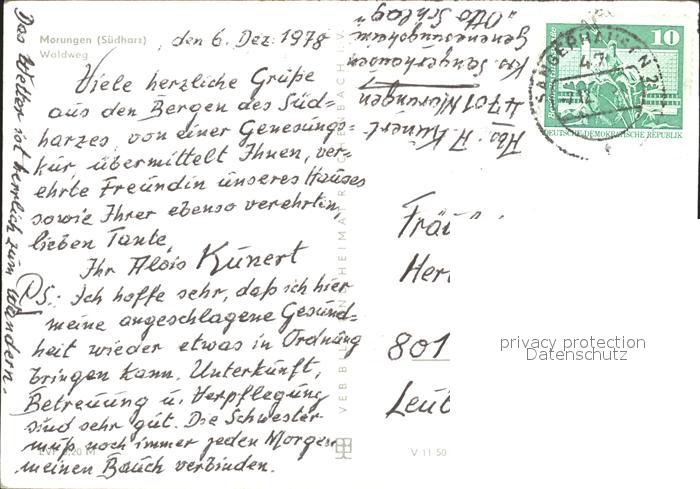 Morungen (Südharz)
Waldweg
den 6. Dez. 1978
Viele herzliche Grüße
aus den Bergen des Süd=
harzes, von einer Genesungs=
kur, übermittelt Ihnen, ver-
ehrte Freundin unseres Hauses
sowie Ihrer ebenso verehrten,
lieben Tante,
Ihr Alois Kunert
PS.: Ich hoffe sehr, daß ich hier
meine angeschlagene Gesund=
heit wieder etwas in Ordnung
bringen kann. Unterkunft,
Betreuung u. Verpflegung
sind sehr gut. Die Schwester
muß noch immer jeden Morgen
meinen Bauch verbinden.
Das Wetter ist herrlich zum Wandern.
Abs. A. Kunert
4701 Morungen
Kr. Sangerhausen
Genesungsheim
"Otto Schlag"
VEB BILD UND HEIMAT REICHENBACH I. V.
V 11 50
EVP 0,20 M
10
DEUTSCHE DEMOKRATISCHE REPUBLIK
SANGERHAUSEN
47
12
Fräu
Her
801
Leub
privacy protection
Datenschutz